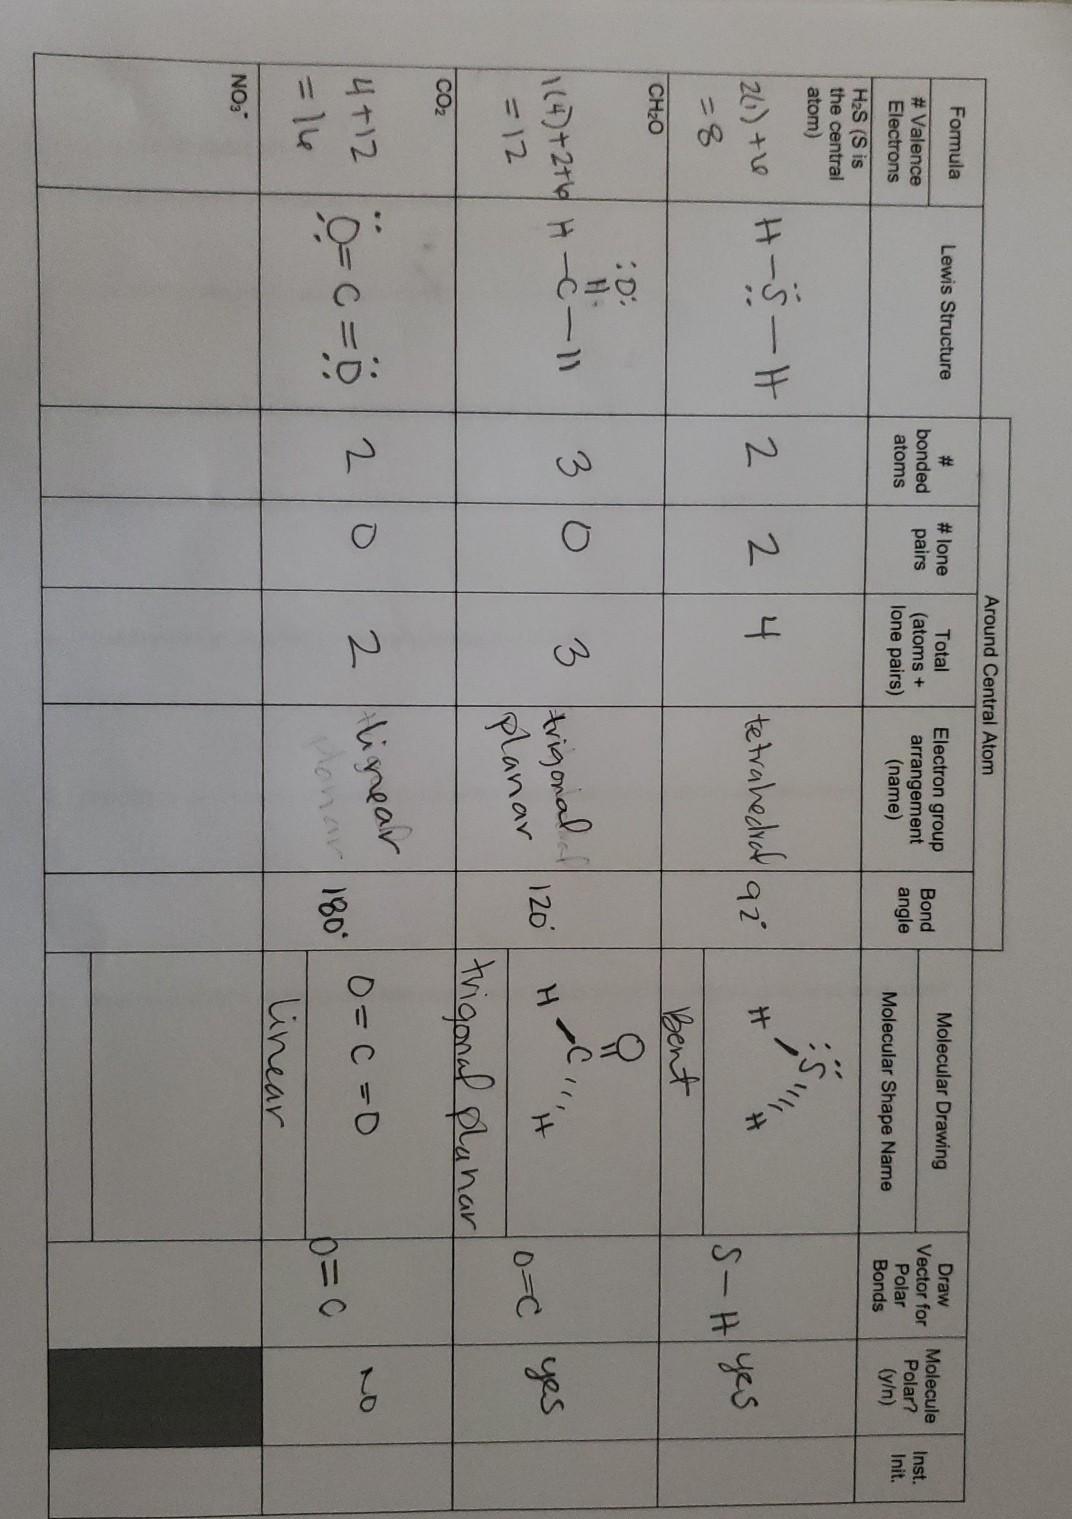 Around Central Atom
Formula
# Valence
Electrons
Lewis Structure
#
bonded
atoms
# lone
pairs
Total
(atoms +
lone pairs)
Electron group
arrangement
(name)
Bond
angle
Molecular Drawing
Molecular Shape Name
Draw
Vector for
Polar
Bonds
Molecule
Polar?
(y/n)
Inst.
Init.
H₂S (S is
the central
atom)
2(1) + 6
= 8
H - S - H
2
2
4
tetrahedral
92°
S
H H
Bent
S - H
yes
CH₂O
1(4)+2+6
= 12
:O:
H - C - H
3
0
3
trigonal
planar
120°
O
H C H
trigonal planar
O=C
yes
CO₂
4+12
= 16
O = C = O
2
0
2
linear
planar
180°
O = C = O
Linear
O = C
NO
NO₃⁻